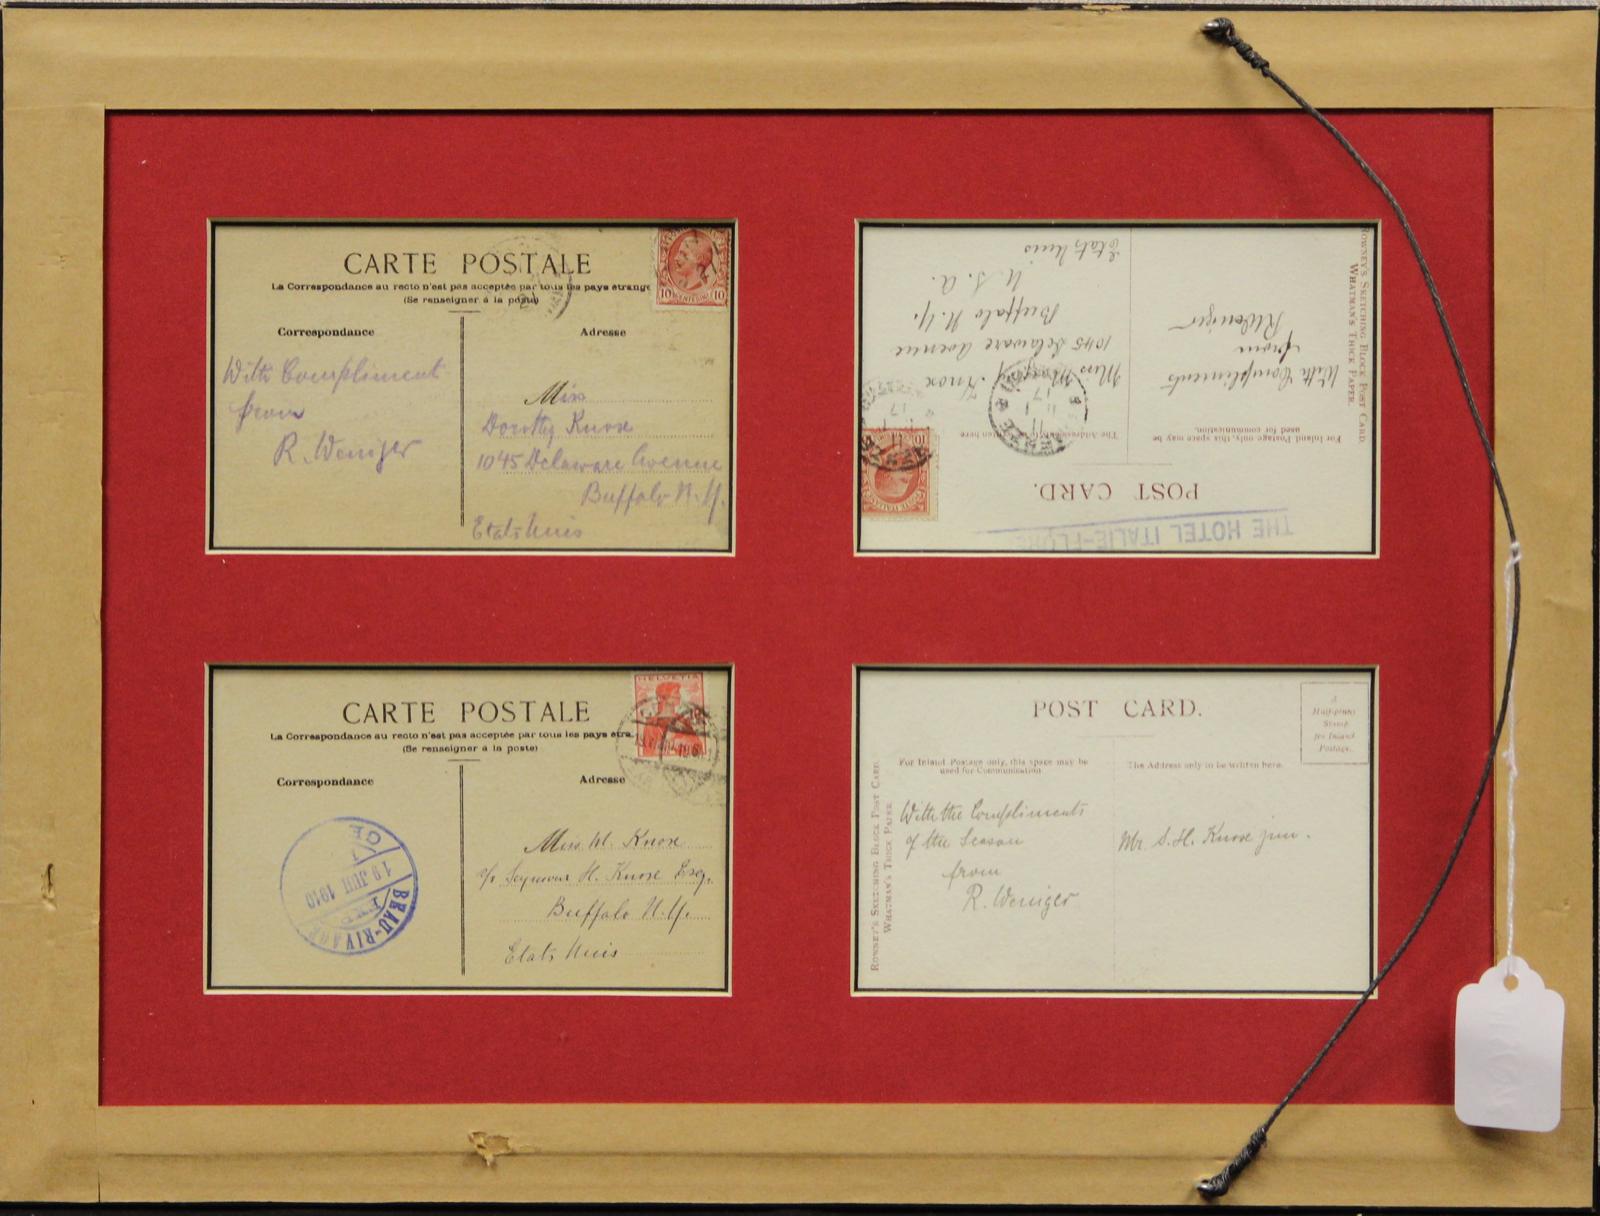 CARTE POSTALE
La Correspondance au recto n'est pas acceptée par tous les pays étrange
(Se renseigner à la poste)
Correspondance
Adresse
With Compliment
from
R. Weniger
Miss
Dorothy Knox
1045 Delaware Avenue
Buffalo N.Y.
Etats Unis
10 10
THE HOTEL ITALIE-FLORE
POST CARD.
For Inland Postage only, this space may be
used for communication.
The Address
With Compliments
from
R. Weniger
Miss Knox
1045 Delaware Avenue
Buffalo N.Y.
U.S.A.
Etats Unis
ROWNEY'S SKETCHING BLOCK POST CARD.
WHATMAN'S THICK PAPER.
10
17
CARTE POSTALE
La Correspondance au recto n'est pas acceptée par tous les pays étra
(Se renseigner à la poste)
Correspondance
Adresse
HELVETIA
BEAU-RIVAGE
19 JUI 1910
Miss M. Knox
c/o Seymour H. Knox Esq.
Buffalo N.Y.
Etats Unis
POST CARD.
A
Half-penny
Stamp
for Inland
Postage.
For Inland Postage only, this space may be
used for Communication
The Address only to be written here.
With the Compliments
of the Season
from
R. Weniger
Mr S. H. Knox jun.
ROWNEY'S SKETCHING BLOCK POST CARD.
WHATMAN'S THICK PAPER